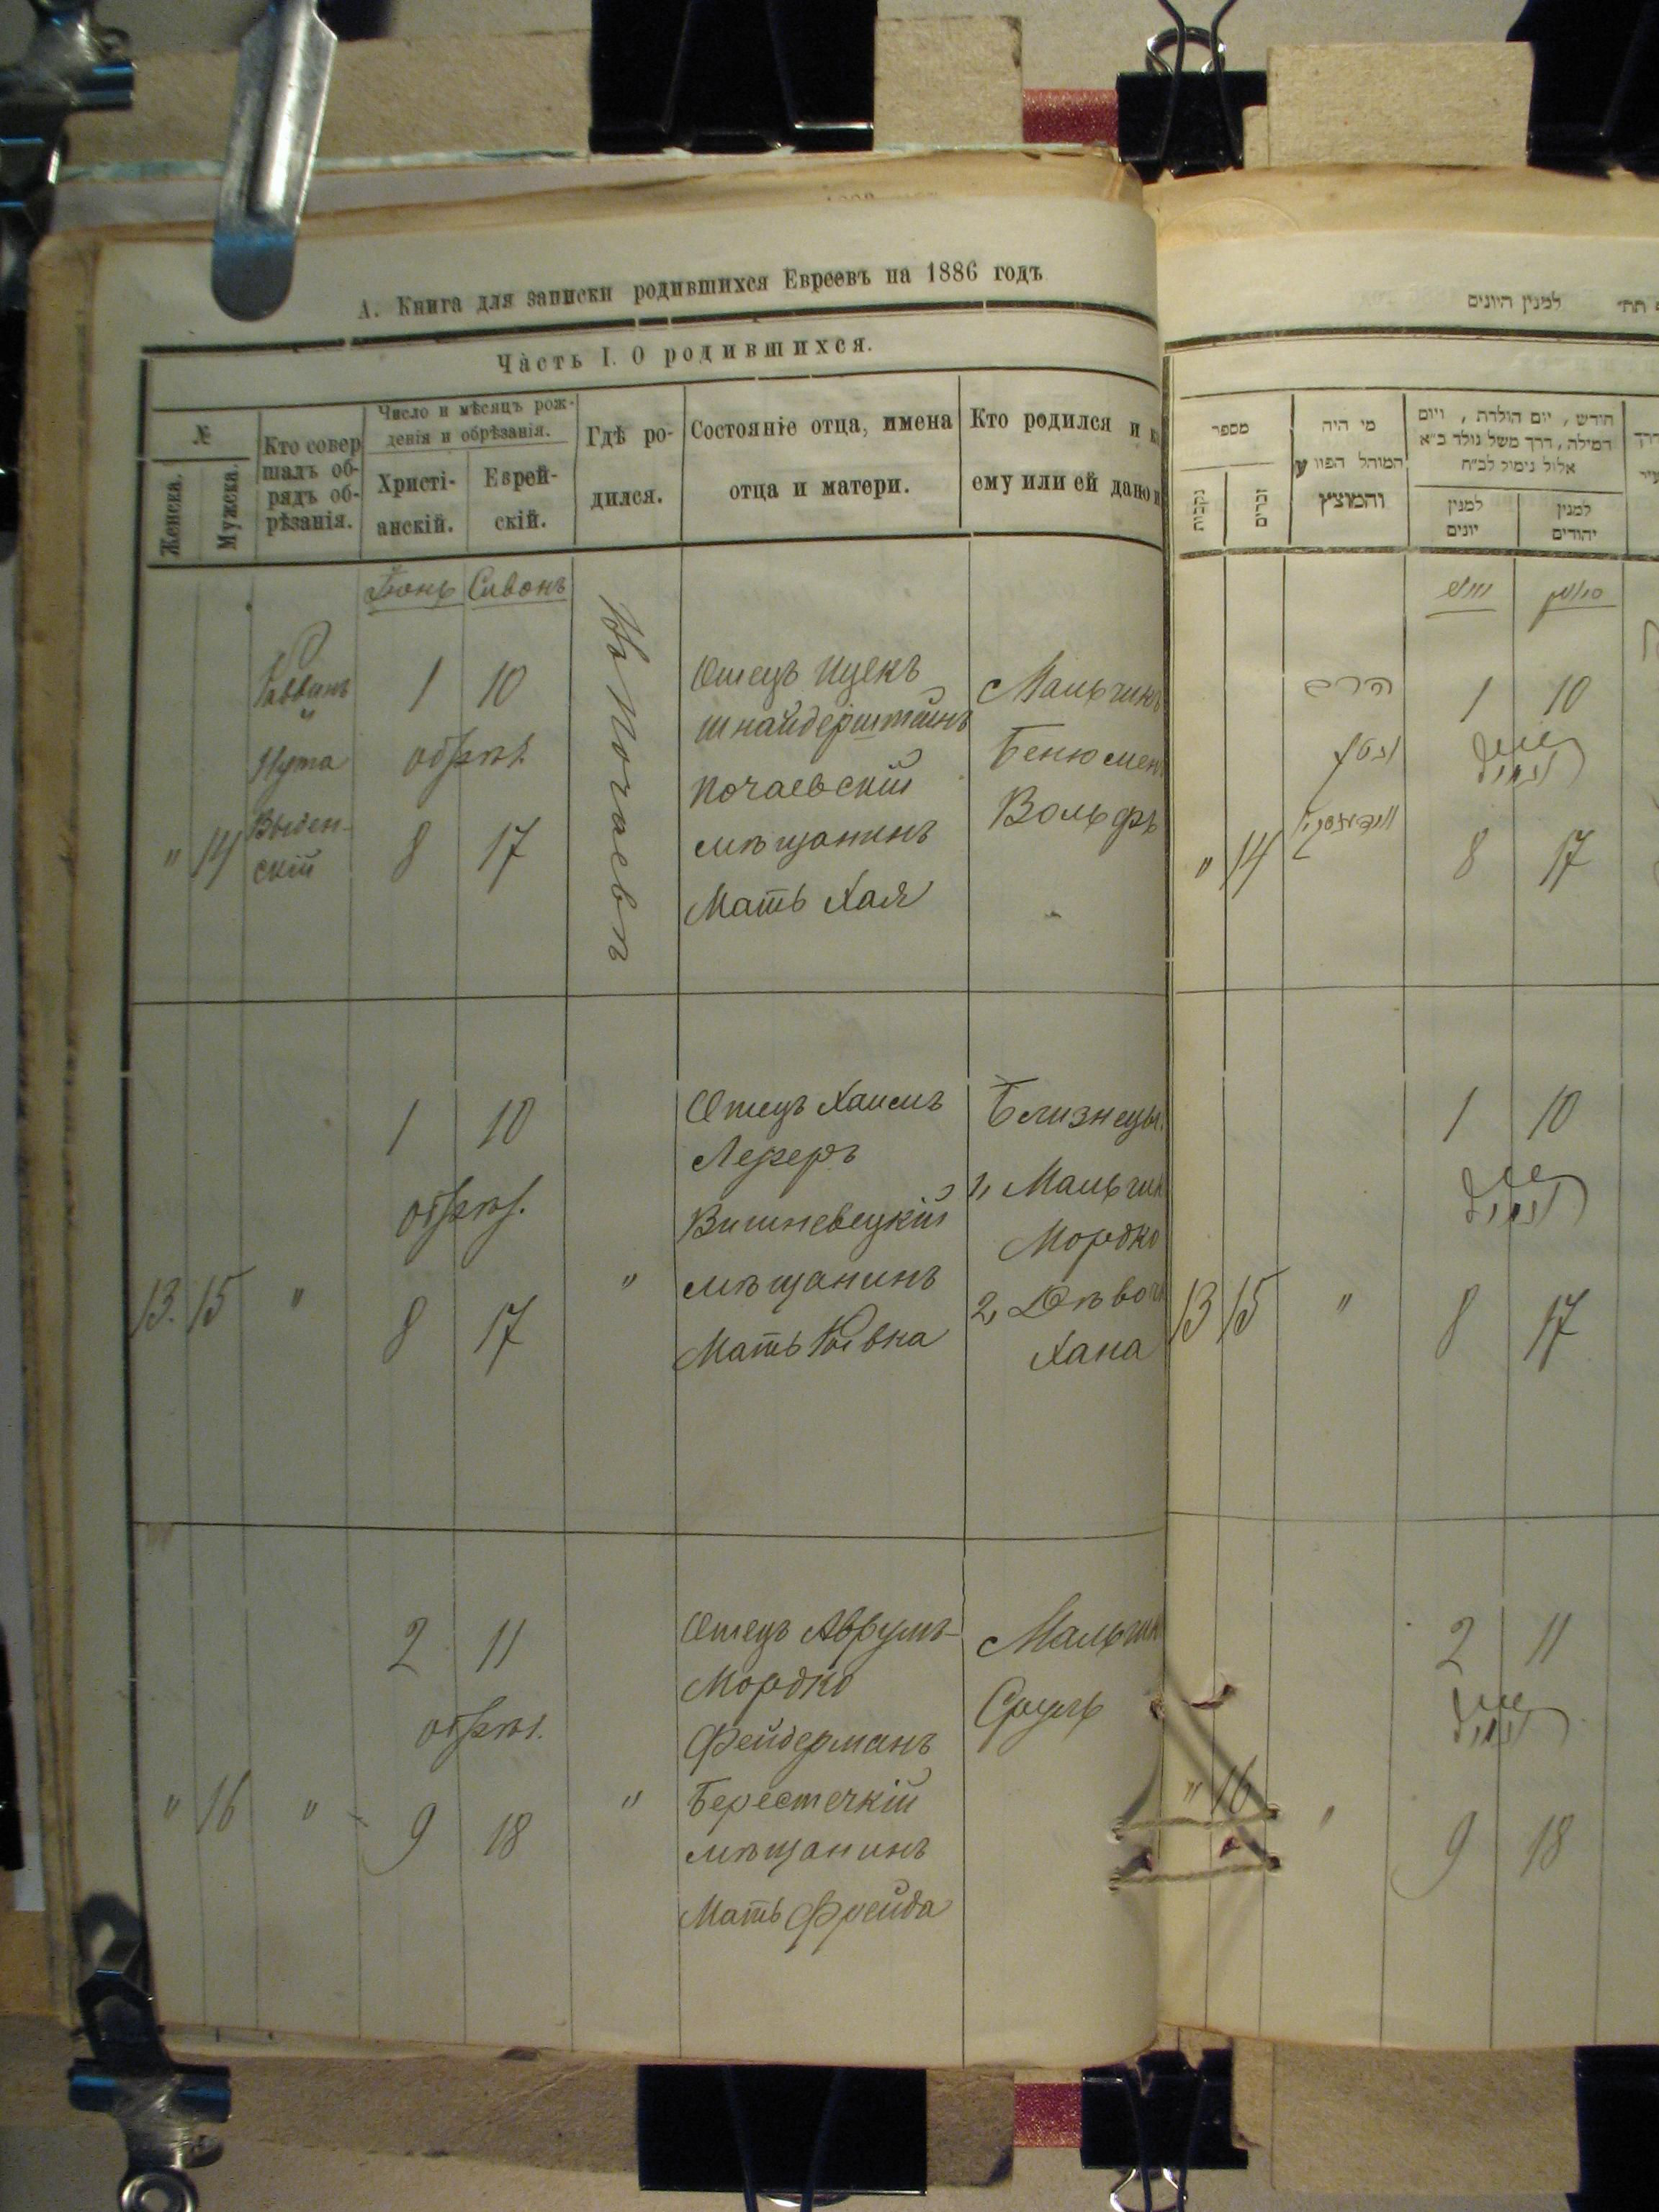 А. Книга для записки родившихся Евреевъ на 1886 годъ
Часть I. О родившихся.
№
Женска.
Мужска.
Кто совер
шалъ об-
рядъ об-
рѣзанія.
Число и мѣсяцъ рож-
денія и обрѣзанія.
Христі-
анскій.
Еврей-
скій.
Гдѣ ро-
дился.
Состояніе отца, имена
отца и матери.
Кто родился и к
ему или ей дано и
Іюнь Сивонъ
Въ Почаевѣ
" 14
Раввинъ
"
Нута
Выден-
скій
1 10
обрѣз.
8 17
Отецъ Ицекъ
Шнайдерштейнъ
Почаевскій
мѣщанинъ
Мать Хая
Мальчикъ
Бенюмен
Вольфъ
13. 15 "
1 10
обрѣз.
8 17
"
Отецъ Хаимъ
Лереръ
Вишневецкій
мѣщанинъ
Мать Ривка
Близнецы.
1, Мальчик
Мордко
2, Дѣвочк
Хана
" 16 "
2 11
обрѣз.
9 18
"
Отецъ Аврумъ-
Мордко
Фейдерманъ
Берестечкій
мѣщанинъ
Мать Фрейда
Мальчик
Сруль
למנין היונים
מספר
נקבות
זכרים
מי היה
המוהל הפורע
והמוצץ
חודש, יום הולדת, ויום
המילה, דרך משל נולד כ״א
אלול נימול לכ״ח
למנין
יונים
למנין
יהודים
סיון
" 14
הרב
1 10
8 17
13 15 "
1 10
8 17
" 16 "
2 11
9 18